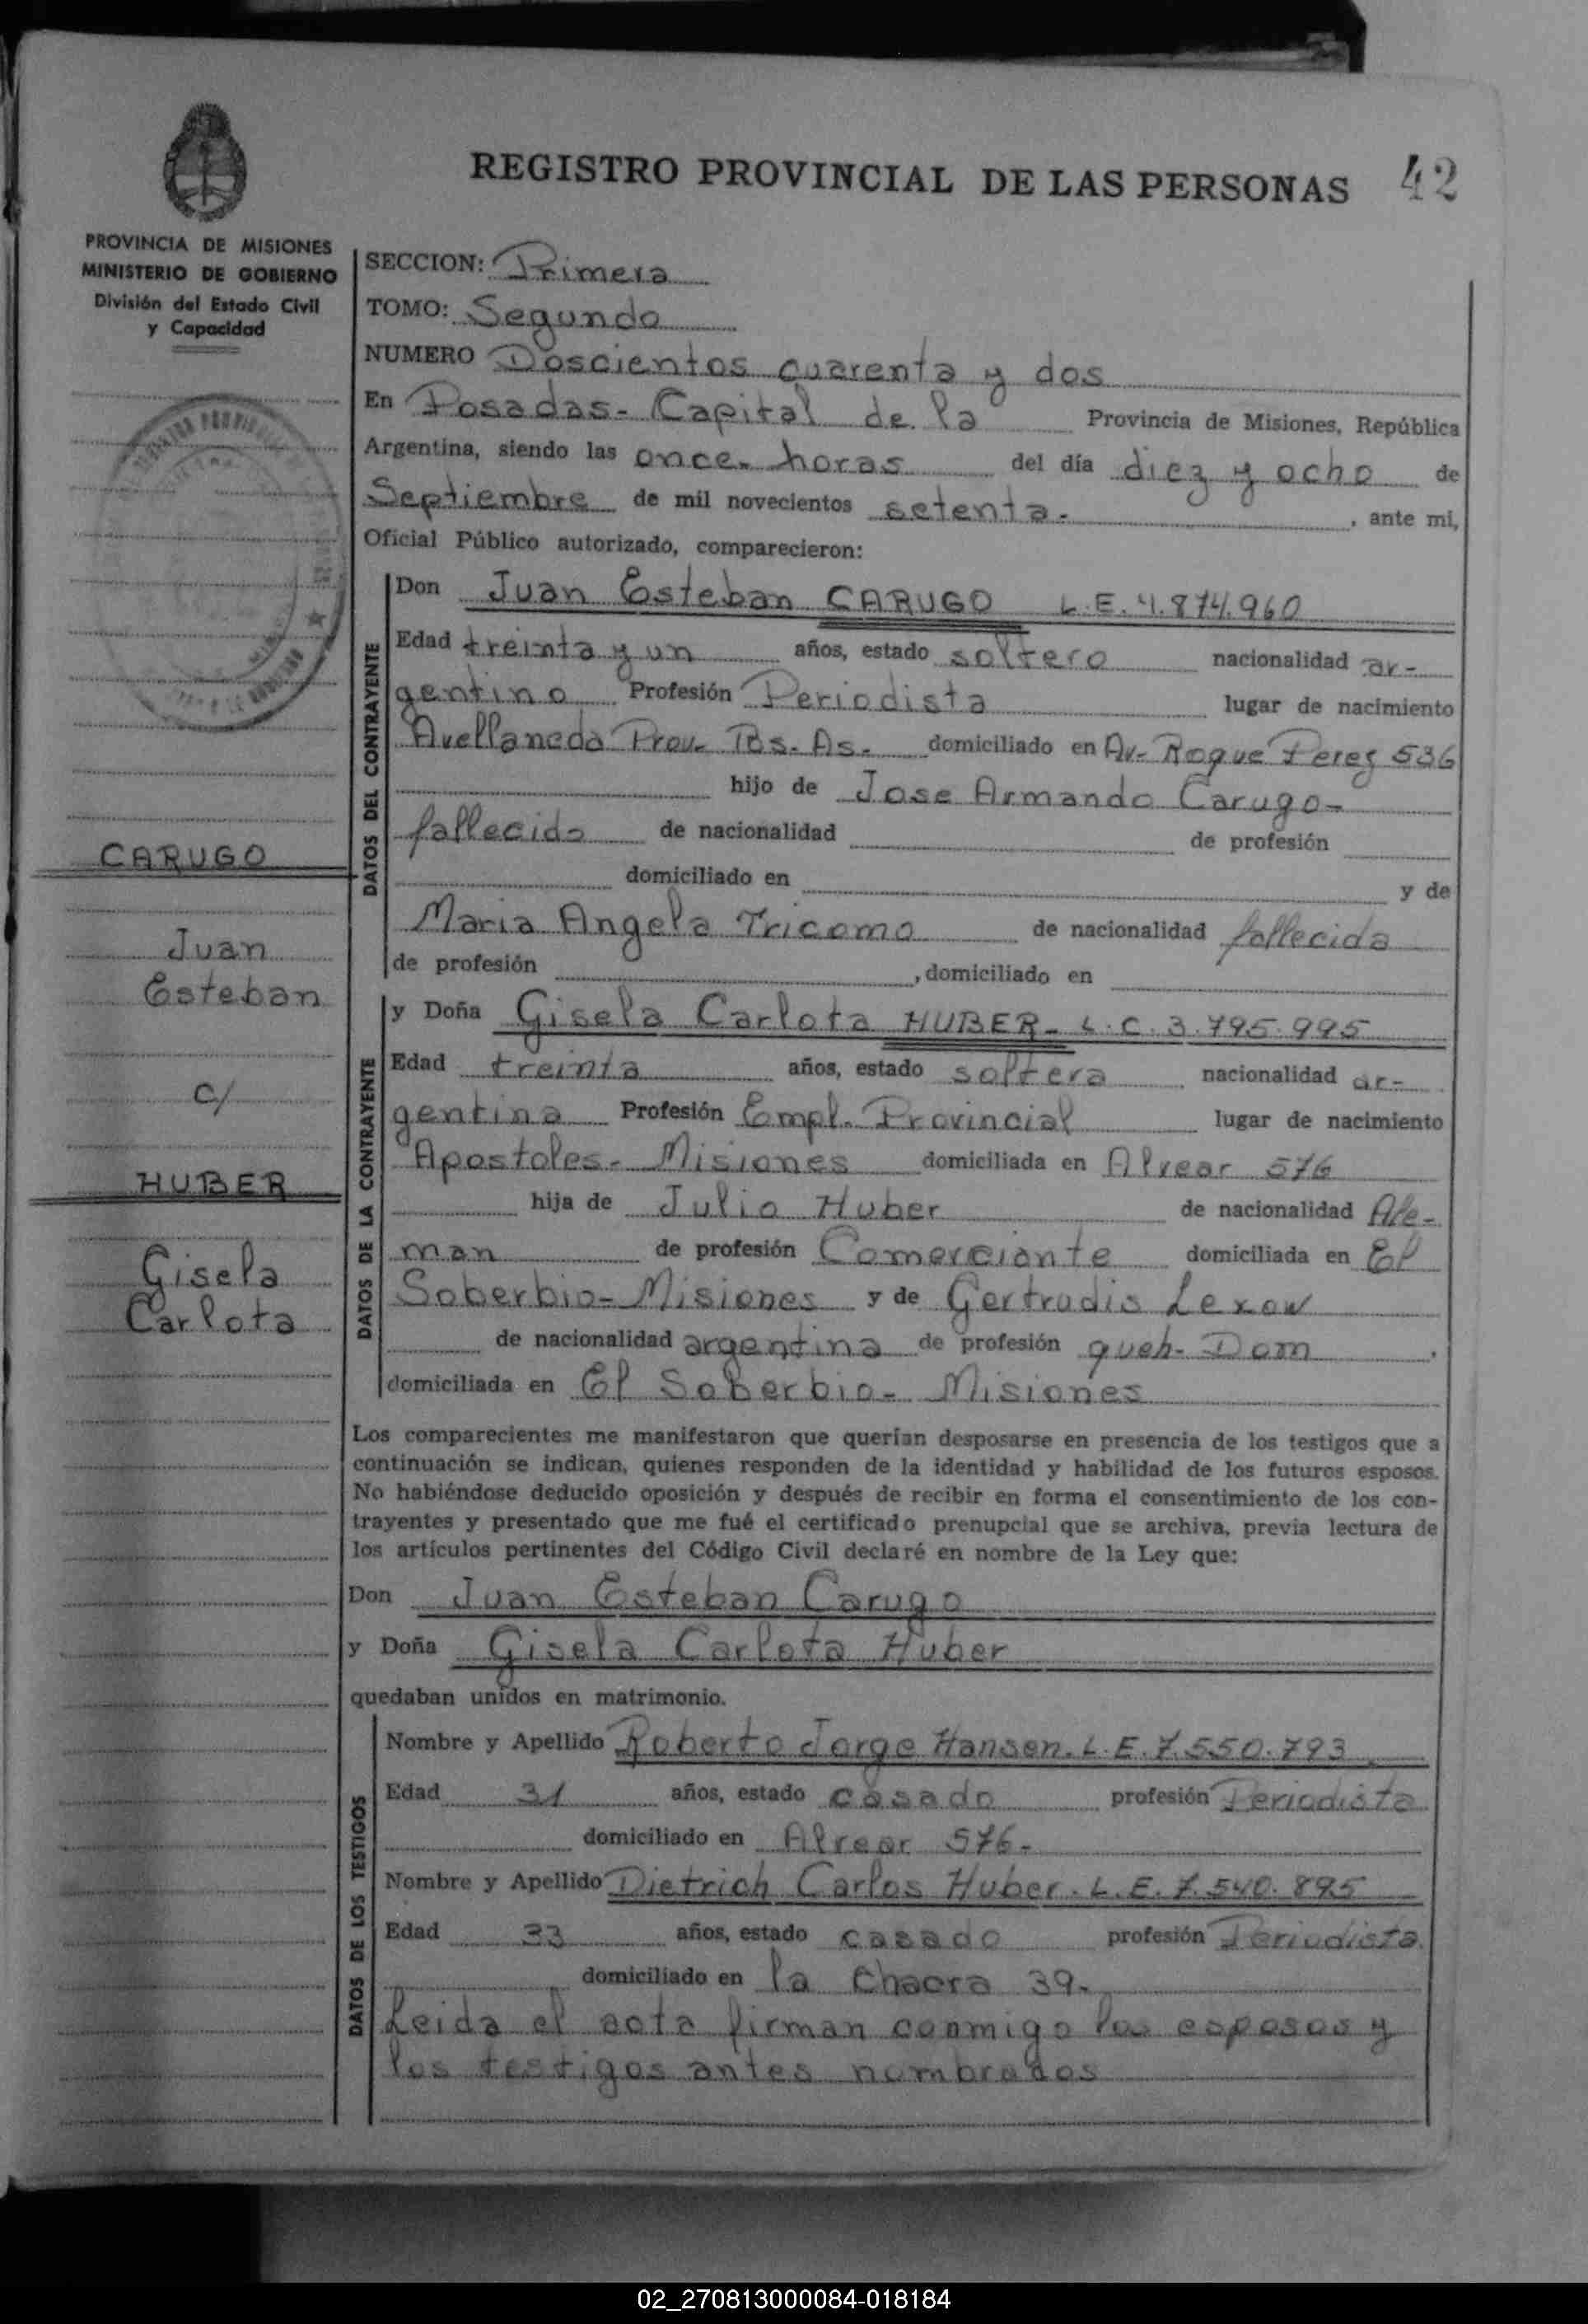 REGISTRO PROVINCIAL DE LAS PERSONAS 42
PROVINCIA DE MISIONES
MINISTERIO DE GOBIERNO
División del Estado Civil
y Capacidad
CARUGO
Juan
Esteban
c/
HUBER
Gisela
Carlota
SECCION: Primera
TOMO: Segundo
NUMERO Doscientos cuarenta y dos
En Posadas - Capital de la Provincia de Misiones, República
Argentina, siendo las once horas del día diez y ocho de
Septiembre de mil novecientos setenta.- , ante mi,
Oficial Público autorizado, comparecieron:
DATOS DEL CONTRAYENTE
Don Juan Esteban CARUGO L.E. 4.874.960
Edad treinta y un años, estado soltero nacionalidad ar-
gentino Profesión Periodista lugar de nacimiento
Avellaneda Prov. Bs. As. domiciliado en Av. Roque Perez 536
hijo de Jose Armando Carugo-
fallecido de nacionalidad de profesión
domiciliado en y de
Maria Angela Tricomo de nacionalidad fallecida
de profesión , domiciliado en
DATOS DE LA CONTRAYENTE
y Doña Gisela Carlota HUBER - L.C. 3.795.995
Edad treinta años, estado soltera nacionalidad ar-
gentina Profesión Empl. Provincial lugar de nacimiento
Apostoles - Misiones domiciliada en Alvear 576
hija de Julio Huber de nacionalidad Ale-
man de profesión Comerciante domiciliada en El
Soberbio - Misiones y de Gertrudis Lexow
de nacionalidad argentina de profesión queh. Dom .
domiciliada en El Soberbio - Misiones
Los comparecientes me manifestaron que querían desposarse en presencia de los testigos que a
continuación se indican, quienes responden de la identidad y habilidad de los futuros esposos.
No habiéndose deducido oposición y después de recibir en forma el consentimiento de los con-
trayentes y presentado que me fué el certificado prenupcial que se archiva, previa lectura de
los artículos pertinentes del Código Civil declaré en nombre de la Ley que:
Don Juan Esteban Carugo
y Doña Gisela Carlota Huber
quedaban unidos en matrimonio.
DATOS DE LOS TESTIGOS
Nombre y Apellido Roberto Jorge Hansen. L.E. 7.550.793
Edad 31 años, estado casado profesión Periodista
domiciliado en Alvear 576.-
Nombre y Apellido Dietrich Carlos Huber. L.E. 7.540.895
Edad 33 años, estado casado profesión Periodista.
domiciliado en la Chacra 39.
Leida el acta firman conmigo los esposos y
los testigos antes nombrados
02_270813000084-018184